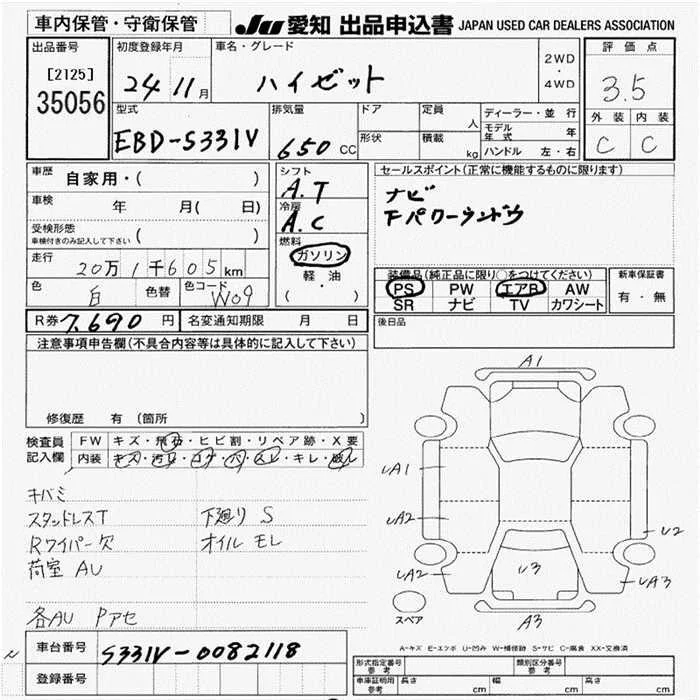 車内保管・守衛保管
JU 愛知 出品申込書 JAPAN USED CAR DEALERS ASSOCIATION
出品番号
[2125]
35056
初度登録年月
24 11月
車名・グレード
ハイゼット
2WD
・
4WD
評価点
3.5
外装 内装
C C
型式
EBD-S331V
排気量
650 CC
ドア
形状
定員
人
積載
kg
ディーラー・並行
モデル年式 年
ハンドル 左・右
車歴 自家用・( )
車検 年 月(日)
受検形態
車検付きのみ記入して下さい ( )
走行
20万1千605km
色
白
色替
色コード
W09
シフト
A.T
冷房
A.C
燃料
ガソリン
軽・油
( )
セールスポイント(正常に機能するものに限ります)
ナビ
Fパワーウンドウ
装備品(純正品に限り○をつけてください)
PS PW エアB AW
SR ナビ TV カワシート
新車保証書
有・無
R券 7,690 円 名変通知期限 月 日
後日品
注意事項申告欄(不具合内容等は具体的に記入して下さい)
修復歴 有(箇所 )
検査員
記入欄
FW キズ・飛石・ヒビ割・リペア跡・X要
内装 キズ・汚れ・コゲ・穴・スレ・キレ・破れ
キバミ
スタッドレスT 下廻り S
Rワイパー欠 オイルモレ
荷室 AU
各AU Pアセ
A1
UA1
UA2
UA2
U2
UA3
U3
A3
スペア
A-キズ E-エクボ U-凹み W-補修跡 S-サビ C-腐食 XX-交換済
車台番号 S331V-0082118
登録番号
型式指定番号
参考
類別区分番号
参考
車庫証明用
参考
長さ cm 幅 cm 高さ cm